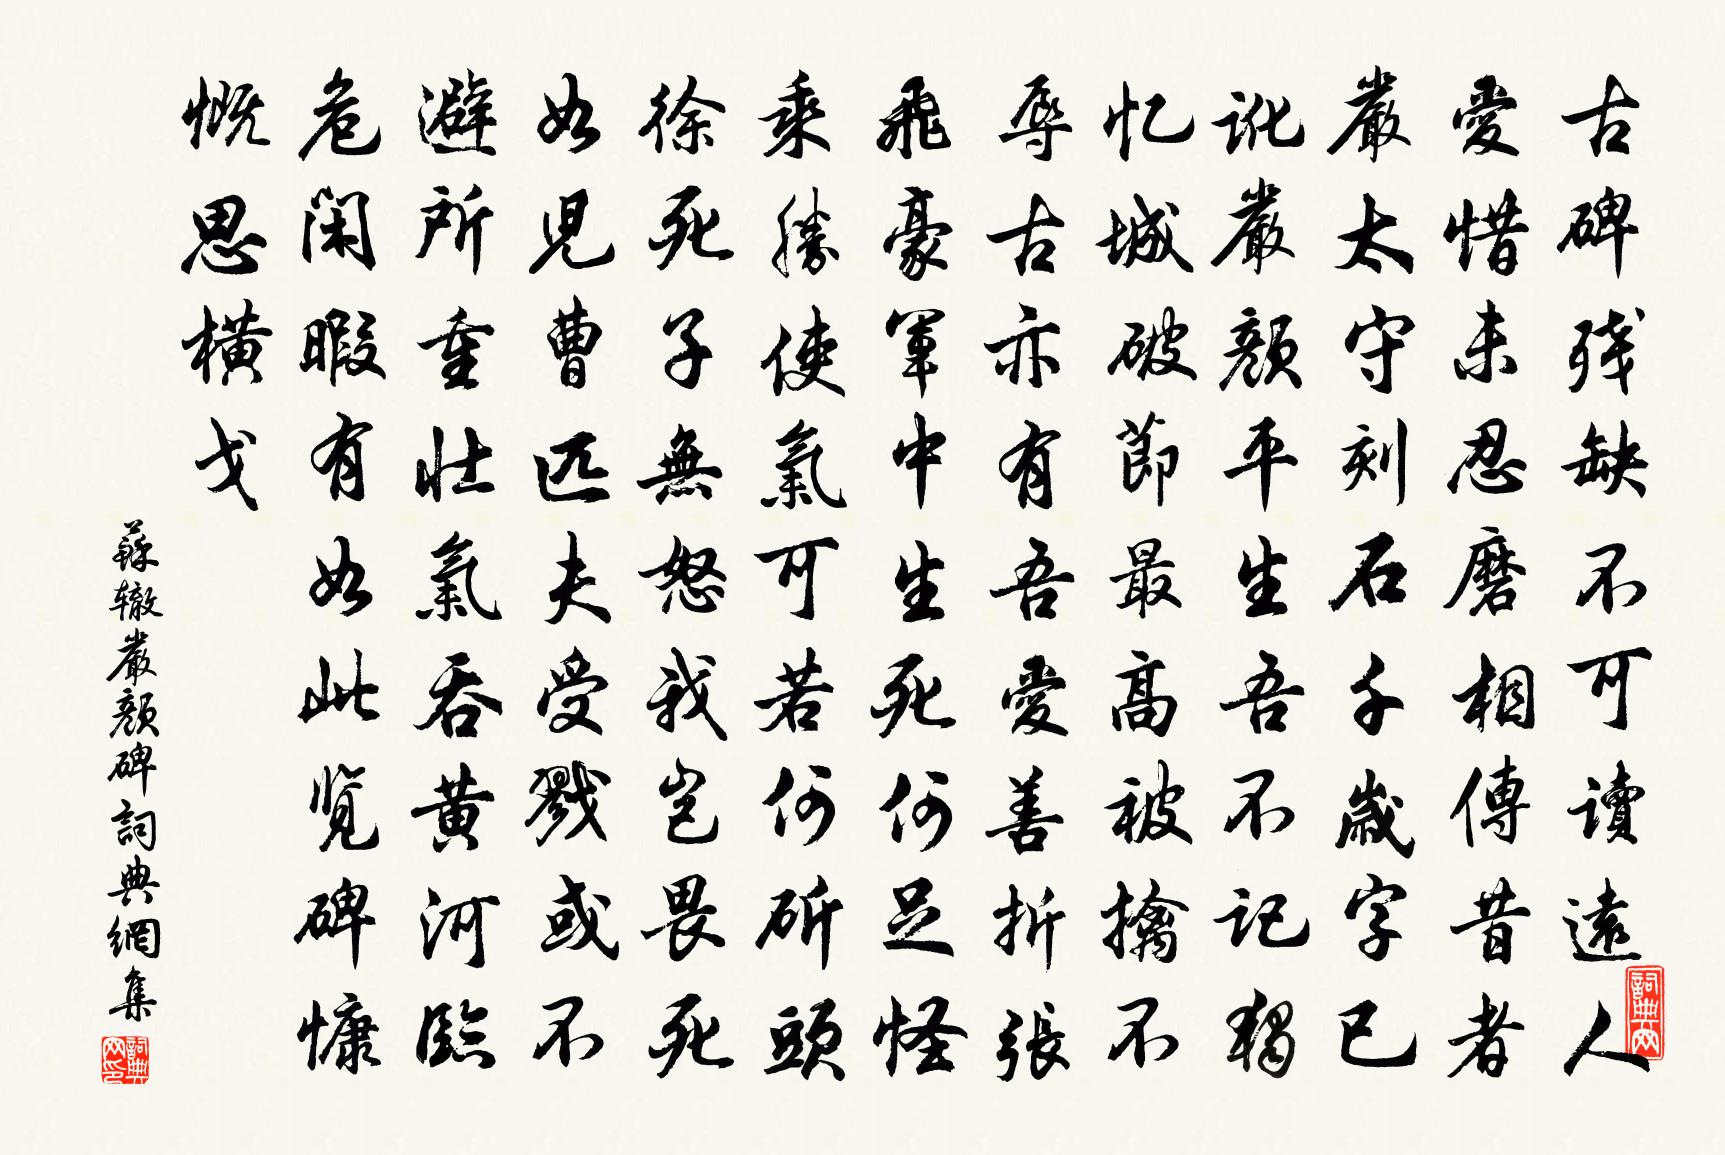 古碑残缺不可讀遠人
愛惜未忍磨相傳昔者
嚴太守刻石千歲字已
訛嚴顏平生吾不記獨
忆城破節最高被擒不
辱古亦有吾愛善折張
飛豪軍中生死何足怪
乘勝使氣可若何斫頭
徐死子無怒我豈畏死
如兒曹匹夫受戮或不
避所重壮氣吞黃河臨
危閑暇有如此览碑慷
慨思橫戈
蘇辙嚴顏碑詞典網集
詞典网
詞典网印